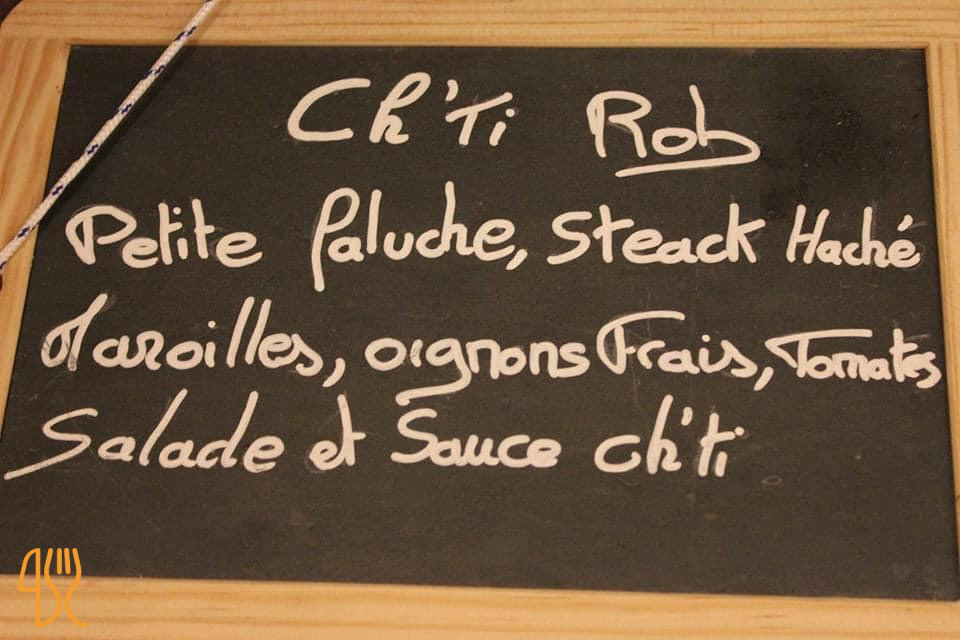 Ch'Ti Rob
Petite Paluche, Steack Haché
Maroilles, oignons Frais, Tomates
Salade et Sauce ch'ti